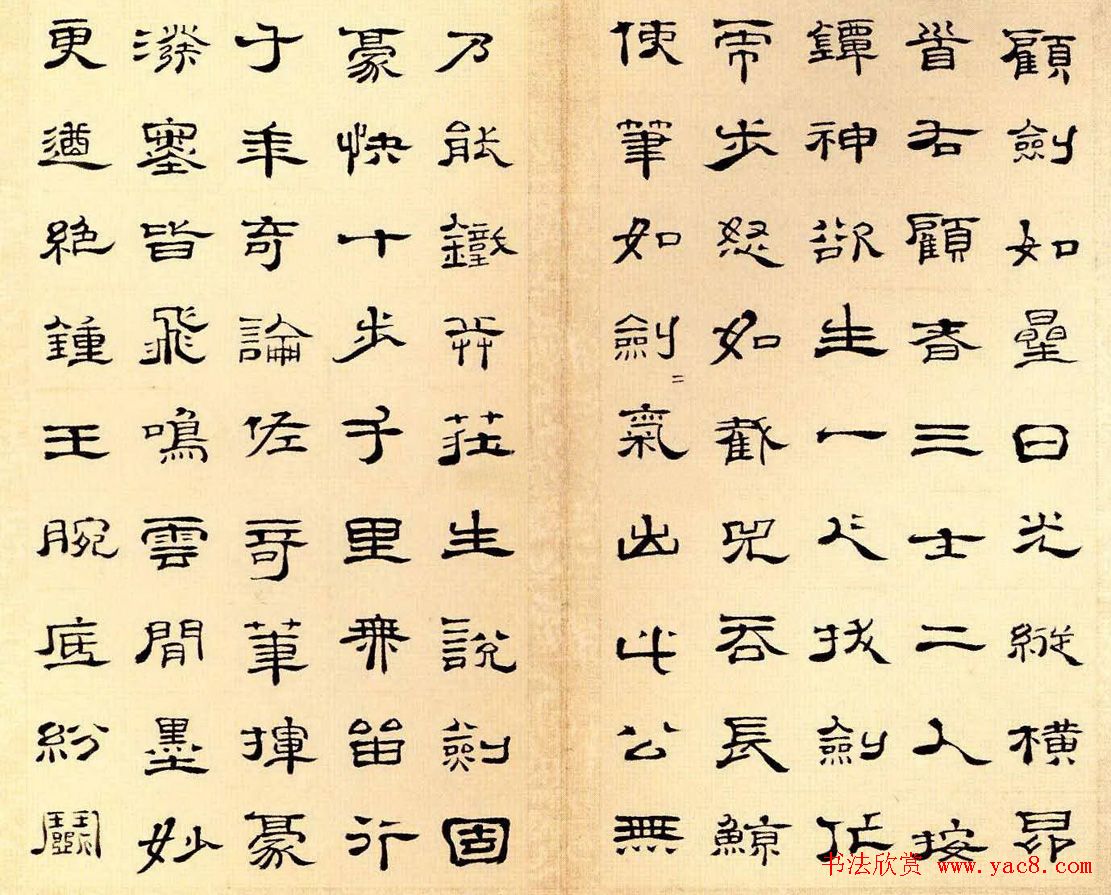 顧劍如曐日光縱橫昂
首右顧者三士二人按
鐔神欲生一人拔劍茫
步怒如截兕吞長鯨
使筆如劍〻氣出此公無
乃能鐵并莊生說劍固
豪快十步千里無留行
于年奇論佐奇筆揮豪
塞皆飛鳴雲間墨妙
更遒絕鍾王腕底紛鬭
书法欣赏 www.yac8.com